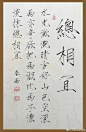 總相宜
水光瀲灩晴方好
山色空濛雨亦奇
欲把西湖比西子
淡妝濃抹總相宜